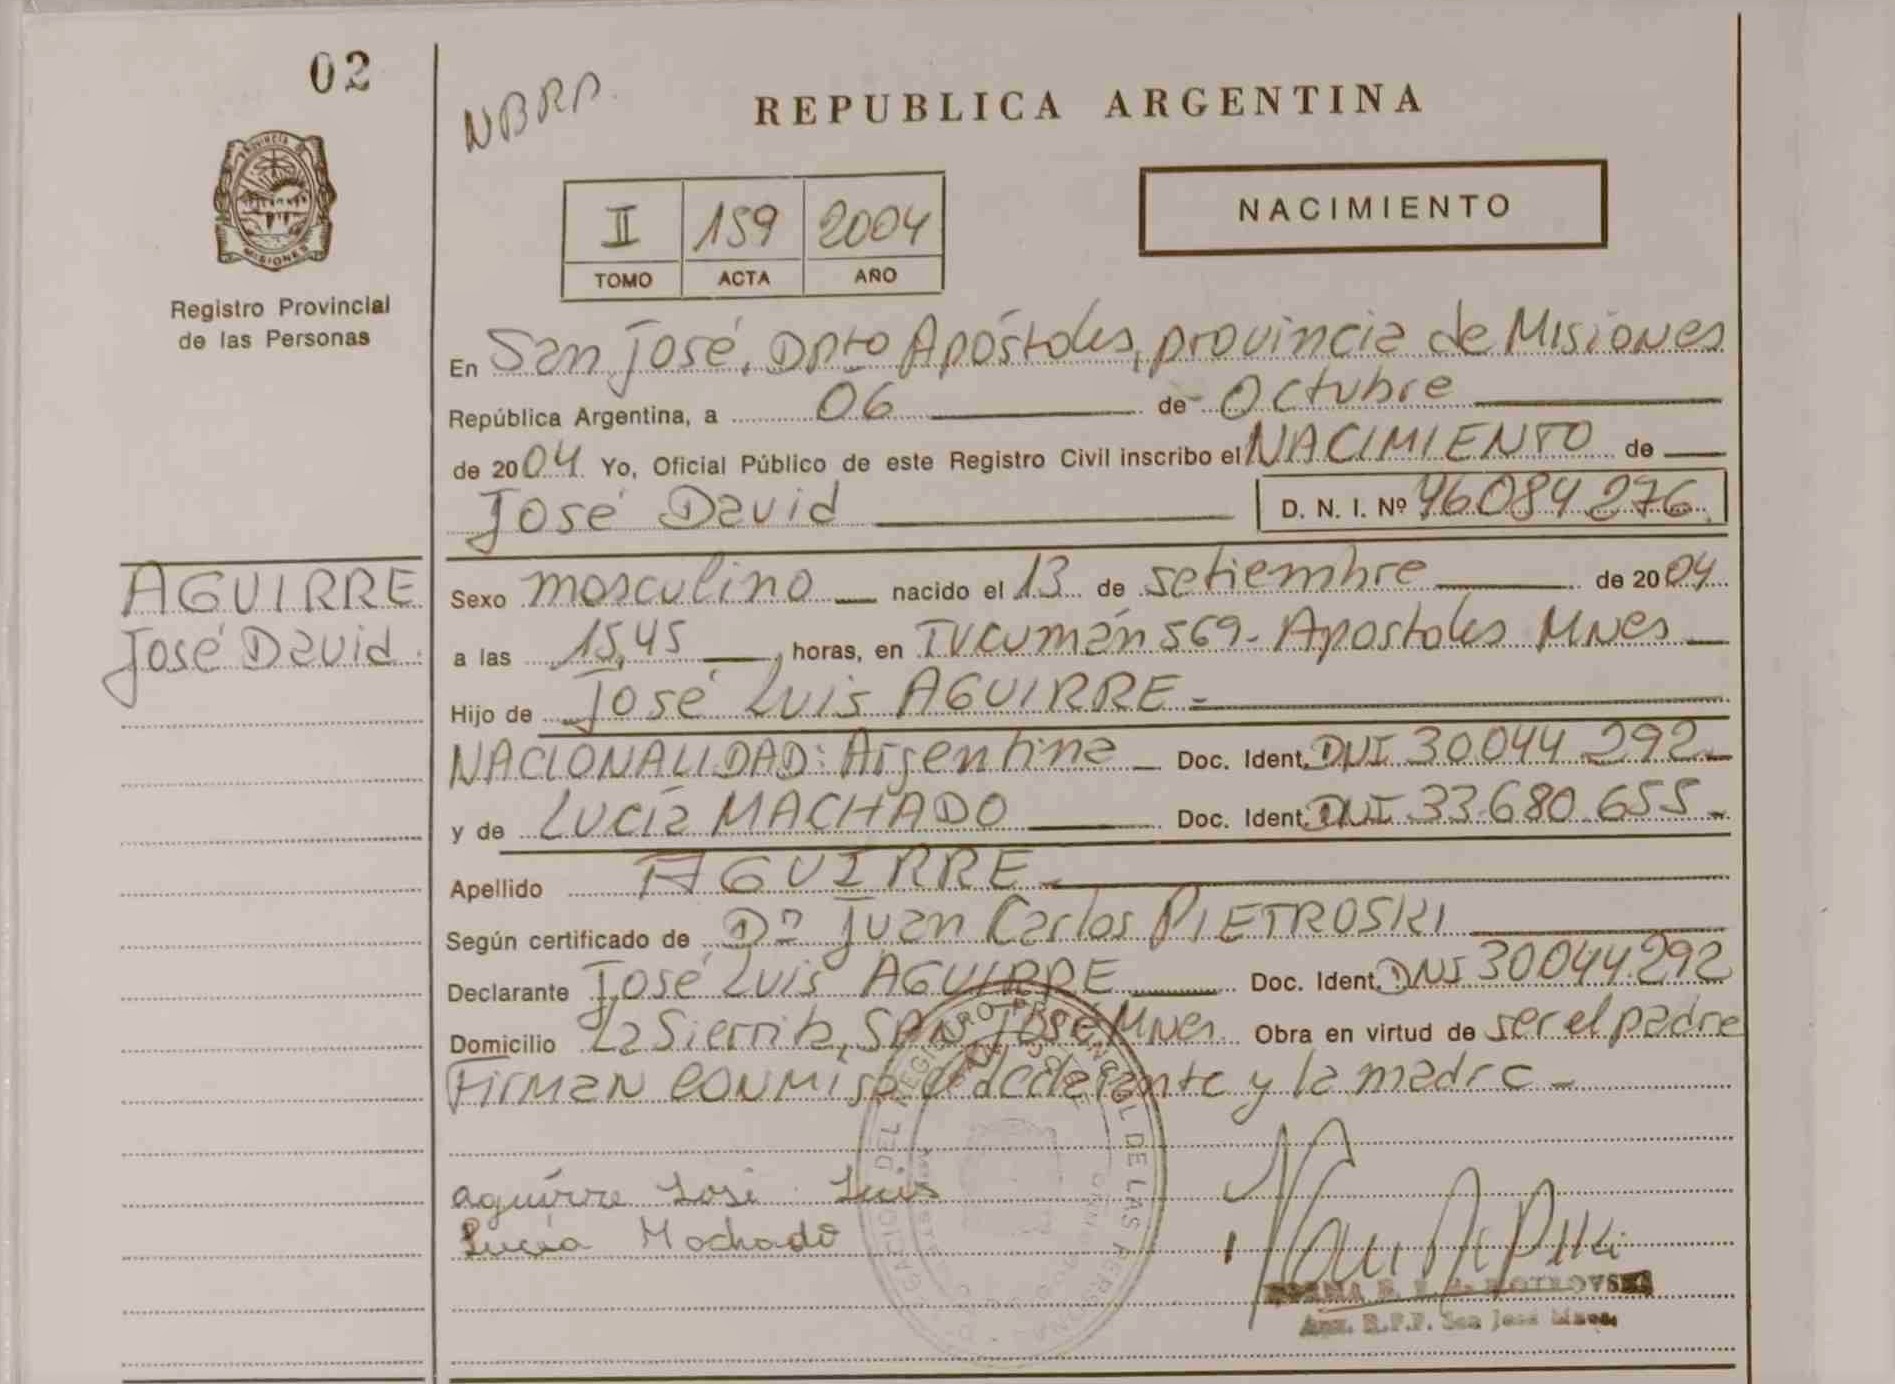 02
NBRP.
REPUBLICA ARGENTINA
PROVINCIA
MISIONES
II 159 2004
TOMO ACTA AÑO
NACIMIENTO
Registro Provincial
de las Personas
En San José, Dpto Apóstoles, provincia de Misiones
República Argentina, a 06 de Octubre
de 2004. Yo, Oficial Público de este Registro Civil inscribo el NACIMIENTO de
José David D. N. I. Nº 46084276.
AGUIRRE
José David.
Sexo masculino nacido el 13 de setiembre de 2004
a las 15,45, horas, en Tucumán 569- Apostoles Mnes
Hijo de José Luis AGUIRRE -
NACIONALIDAD: Argentina Doc. Ident. DNI 30044 292-
y de Lucía MACHADO Doc. Ident. DNI 33.680.655-
Apellido AGUIRRE-
Según certificado de Dº Juan Carlos PIETROSKI
Declarante José Luis AGUIRRE Doc. Ident. DNI 30044.292
Domicilio La Sierrita, SAN José Mnes. Obra en virtud de ser el padre
Firman conmigo el declarante y la madre -
aguirre José Luis
Lucia Machado
DEL REGISTRO PROVINCIAL DE LAS PERSONAS
Aux. R.P.P. San José Mnes.